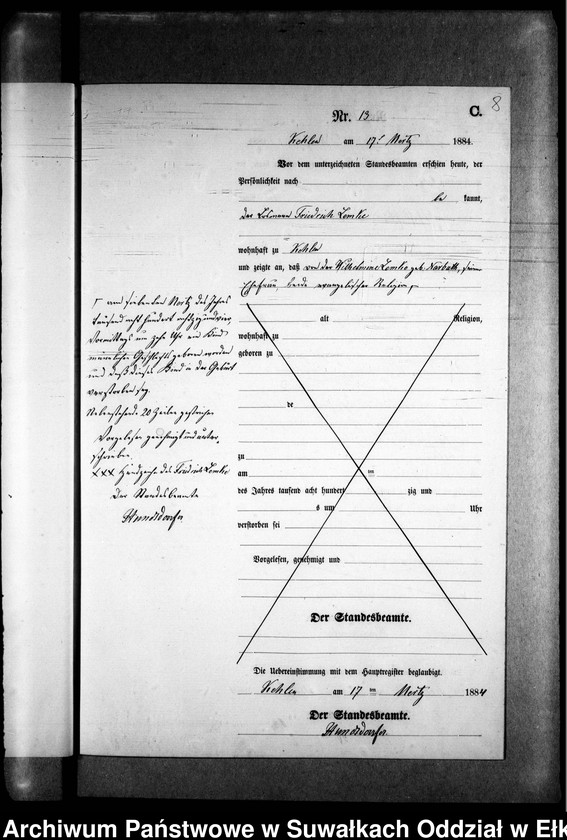 8
C.
Nr. 13
Kehlen am 17ten März 1884.
Vor dem unterzeichneten Standesbeamten erschien heute, der
Persönlichkeit nach
be kannt,
der Losmann Friedrich Lemke
wohnhaft zu Kehlen
und zeigte an, daß von der Wilhelmine Lemke geb. seine
Ehefrau, beide evangelischer Religion,
alt Religion,
wohnhaft zu
geboren zu
de
zu
am ten
des Jahres tausend acht hundert zig und
s um Uhr
verstorben sei
Vorgelesen, genehmigt und
Der Standesbeamte.
Die Uebereinstimmung mit dem Hauptregister beglaubigt.
Kehlen am 17 ten März 1884
Der Standesbeamte.
am siebenten März des Jahres
tausend acht hundert achtzig und vier,
Vormittags um zehn Uhr ein Kind
männlichen Geschlechts geboren worden
und daß dieses Kind in der Geburt
verstorben sei.
Nebenstehende 20 Zeilen gestrichen
Vorgelesen genehmigt und unter
schrieben
XXX Handzeichen des Friedrich Lemke
Der Standesbeamte
Archiwum Państwowe w Suwałkach Oddział w Ełk